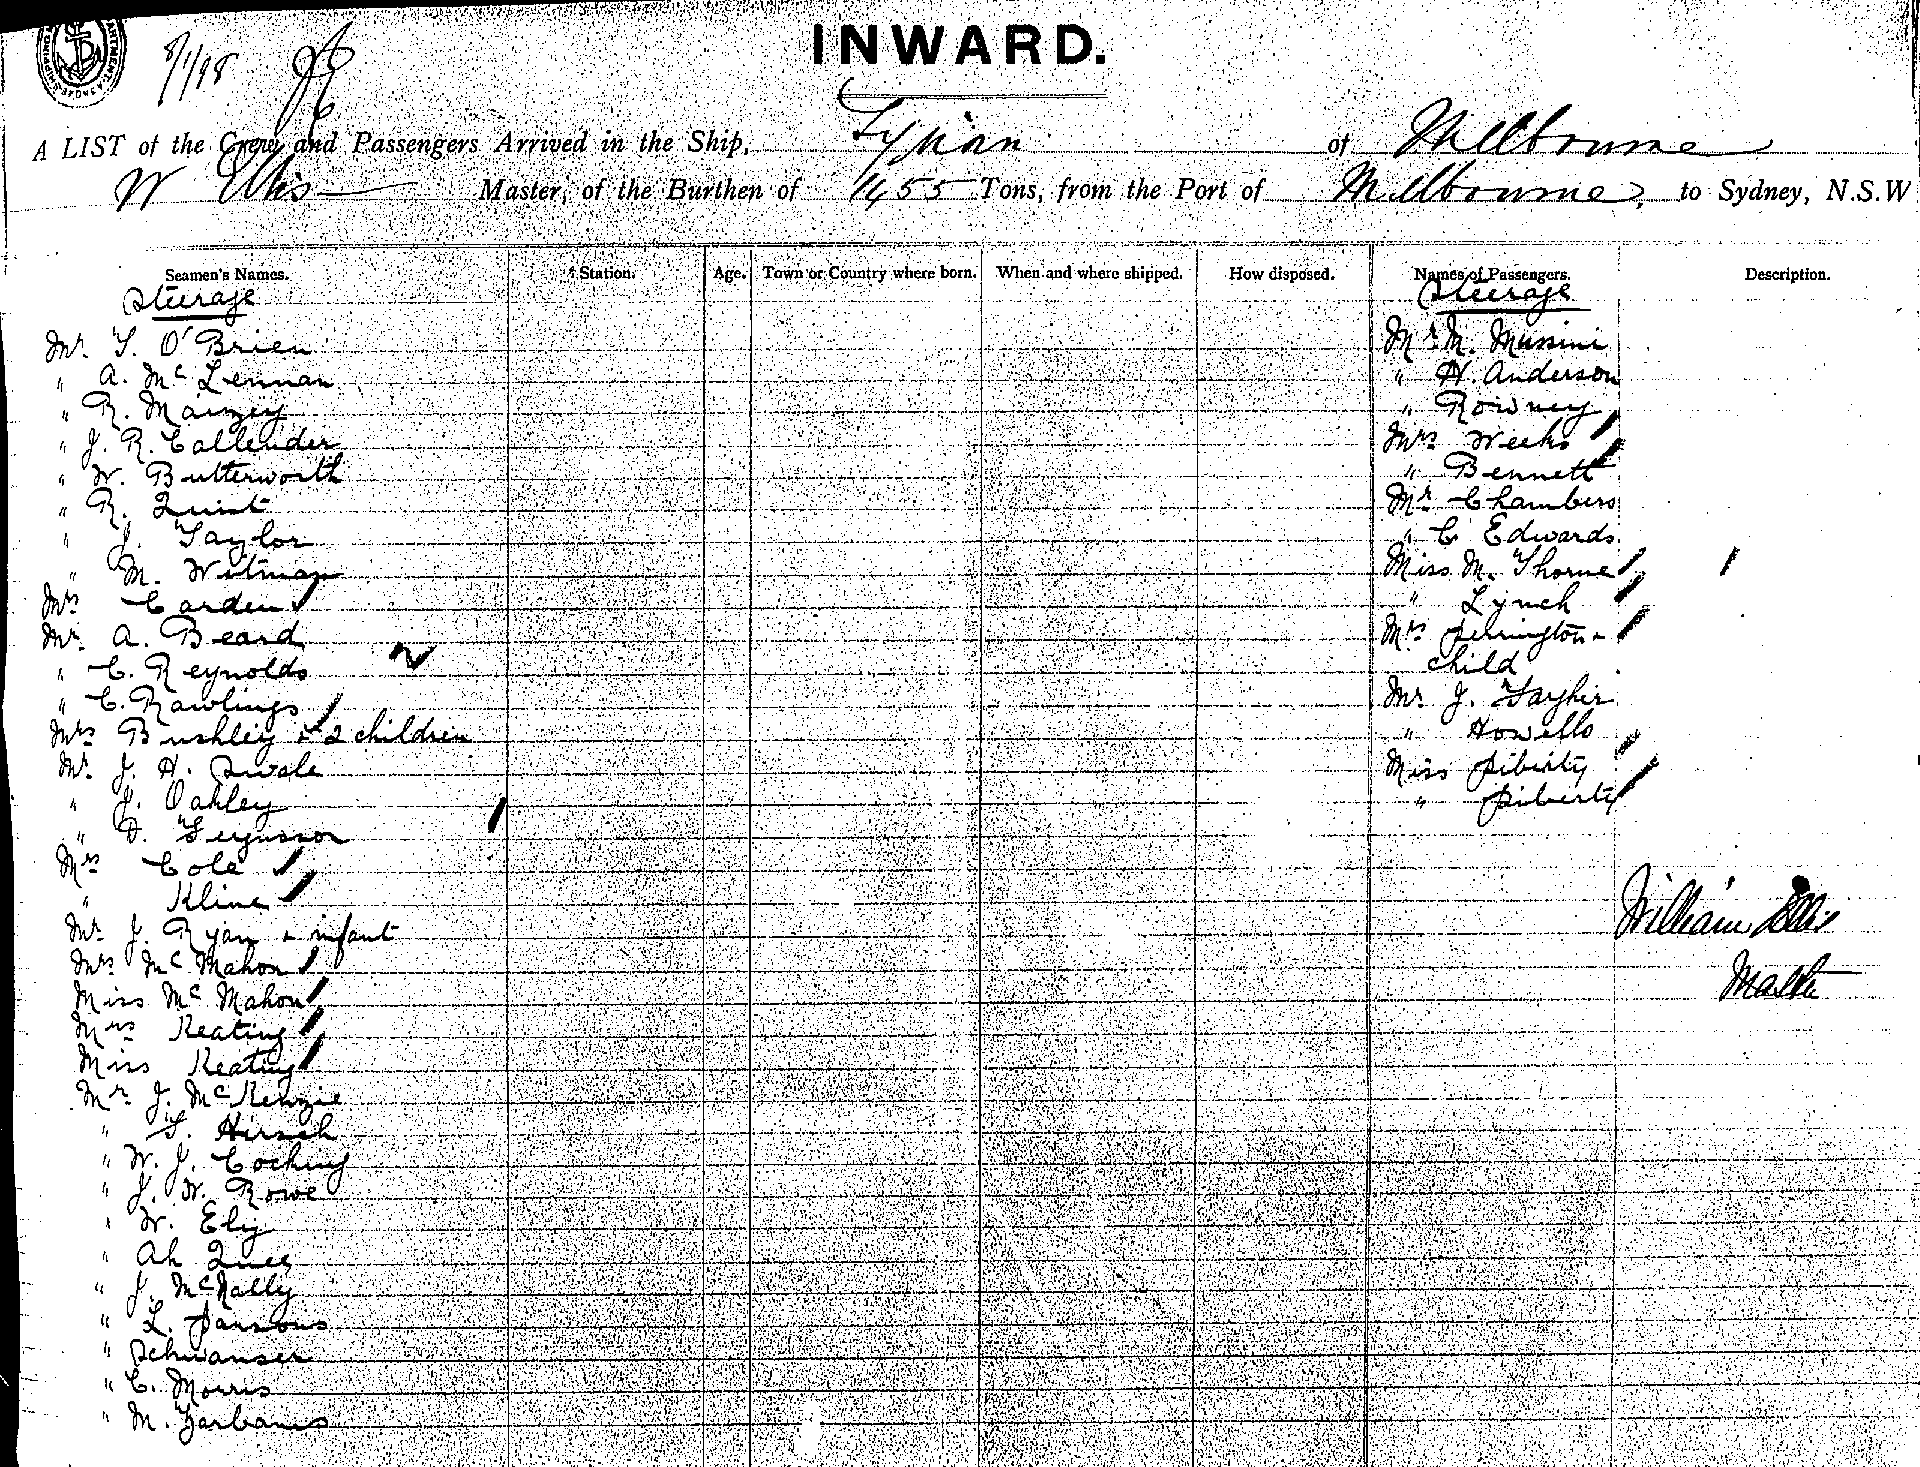 INWARD.
SYDNEY
8/1/98
A LIST of the Crew and Passengers Arrived in the Ship, Tyrian of Melbourne
W Ellis Master, of the Burthen of 1455 Tons, from the Port of Melbourne, to Sydney, N.S.W
Seamen's Names. Station. Age. Town or Country where born. When and where shipped. How disposed. Names of Passengers. Description.
Steerage
Mr. T. O'Brien
" A. McLennan
" R.
" J. R. Callender
" W. Butterworth
" R. Quist
" J. Taylor
" M. Witman
Mrs Carden
Mr. A. Beard
" C. Reynolds
" C. Rawlings
Mrs Bushley & 2 children
Mr. J. H. Swale
" J. Oakley
" D. Fergusson
Mrs Cole
" Kline
Mr. J. Ryan & infant
Mrs McMahon
Miss McMahon
Mrs Keating
Miss Keating
Mr. J. McKenzie
" T. Hirsch
" W. J. Cocking
" J. W. Rowe
" W. Ely
" Ah
" J. McNally
" L. Parsons
" Schwanser
" C. Morris
" M.
Steerage
Mr. M. Mussini
" H. Anderson
" Rowney
Mrs Weeks
" Bennett
Mr. Chambers
" C Edwards
Miss M. Thorne
" Lynch
Mrs &
child
Mr. J.
" Howells
Miss
"
William Ellis
Master